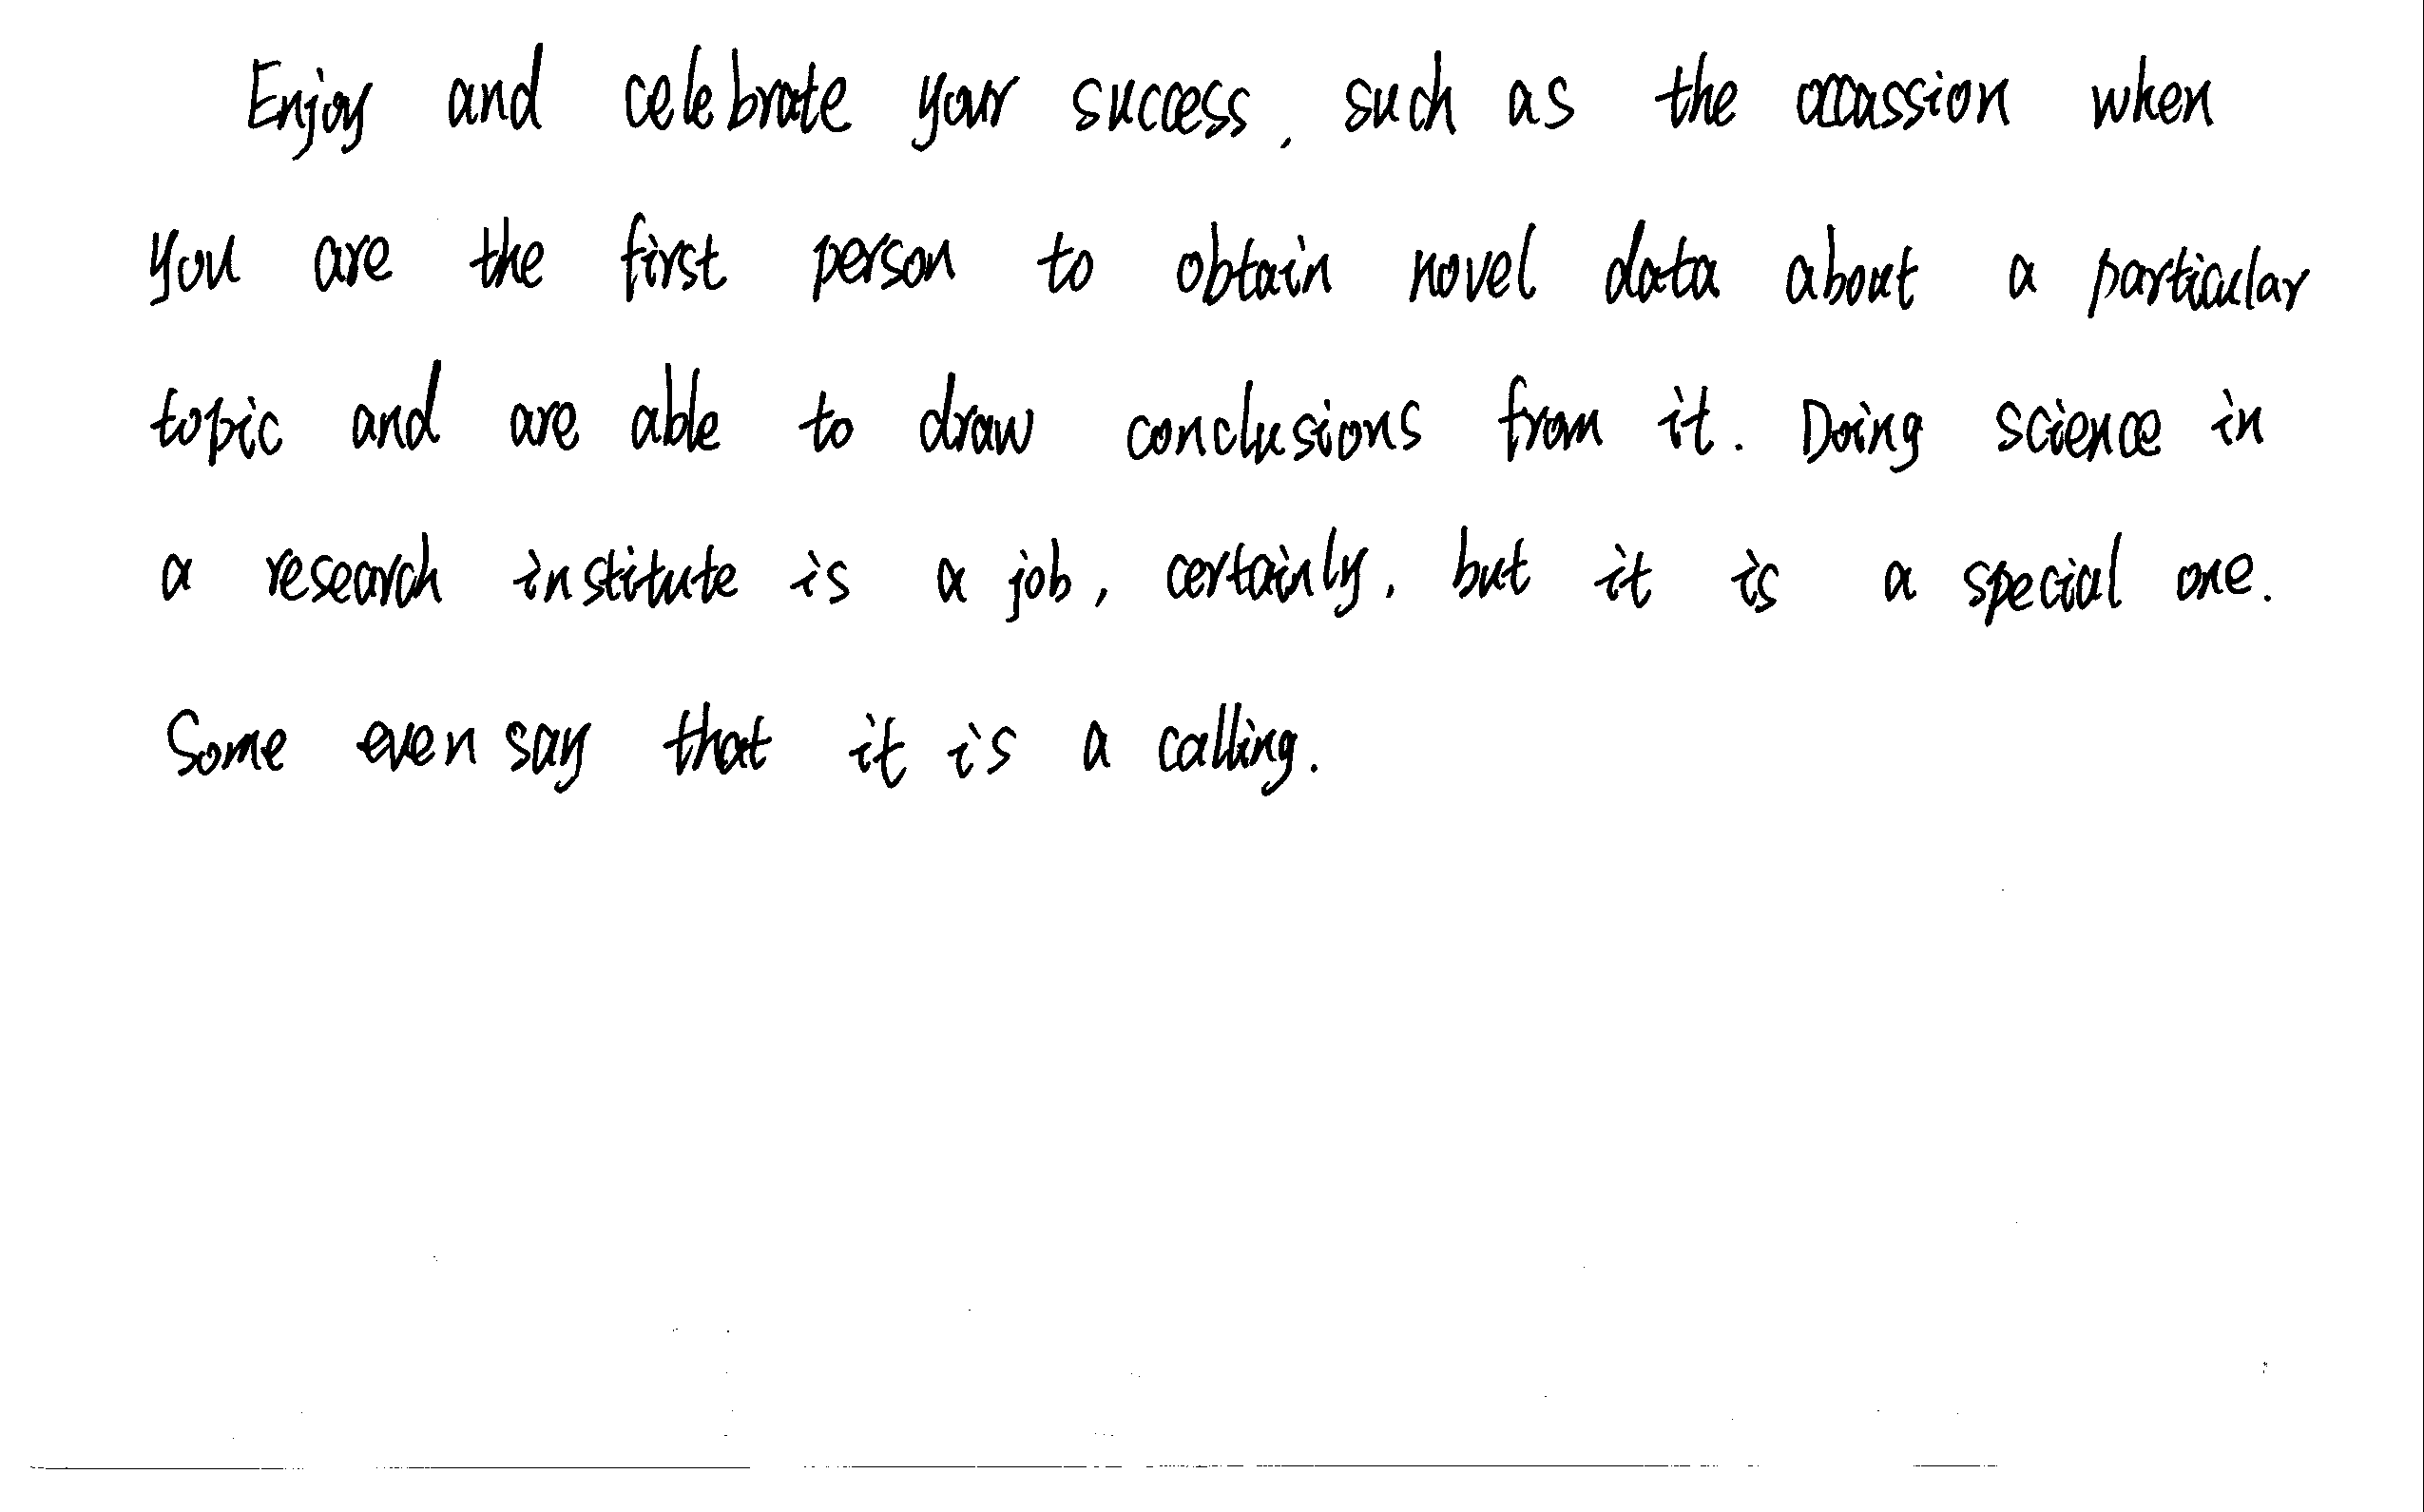 Enjoy and celebrate your success, such as the occassion when
you are the first person to obtain novel data about a particular
topic and are able to draw conclusions from it. Doing science in
a research institute is a job, certainly, but it is a special one.
Some even say that it is a calling.